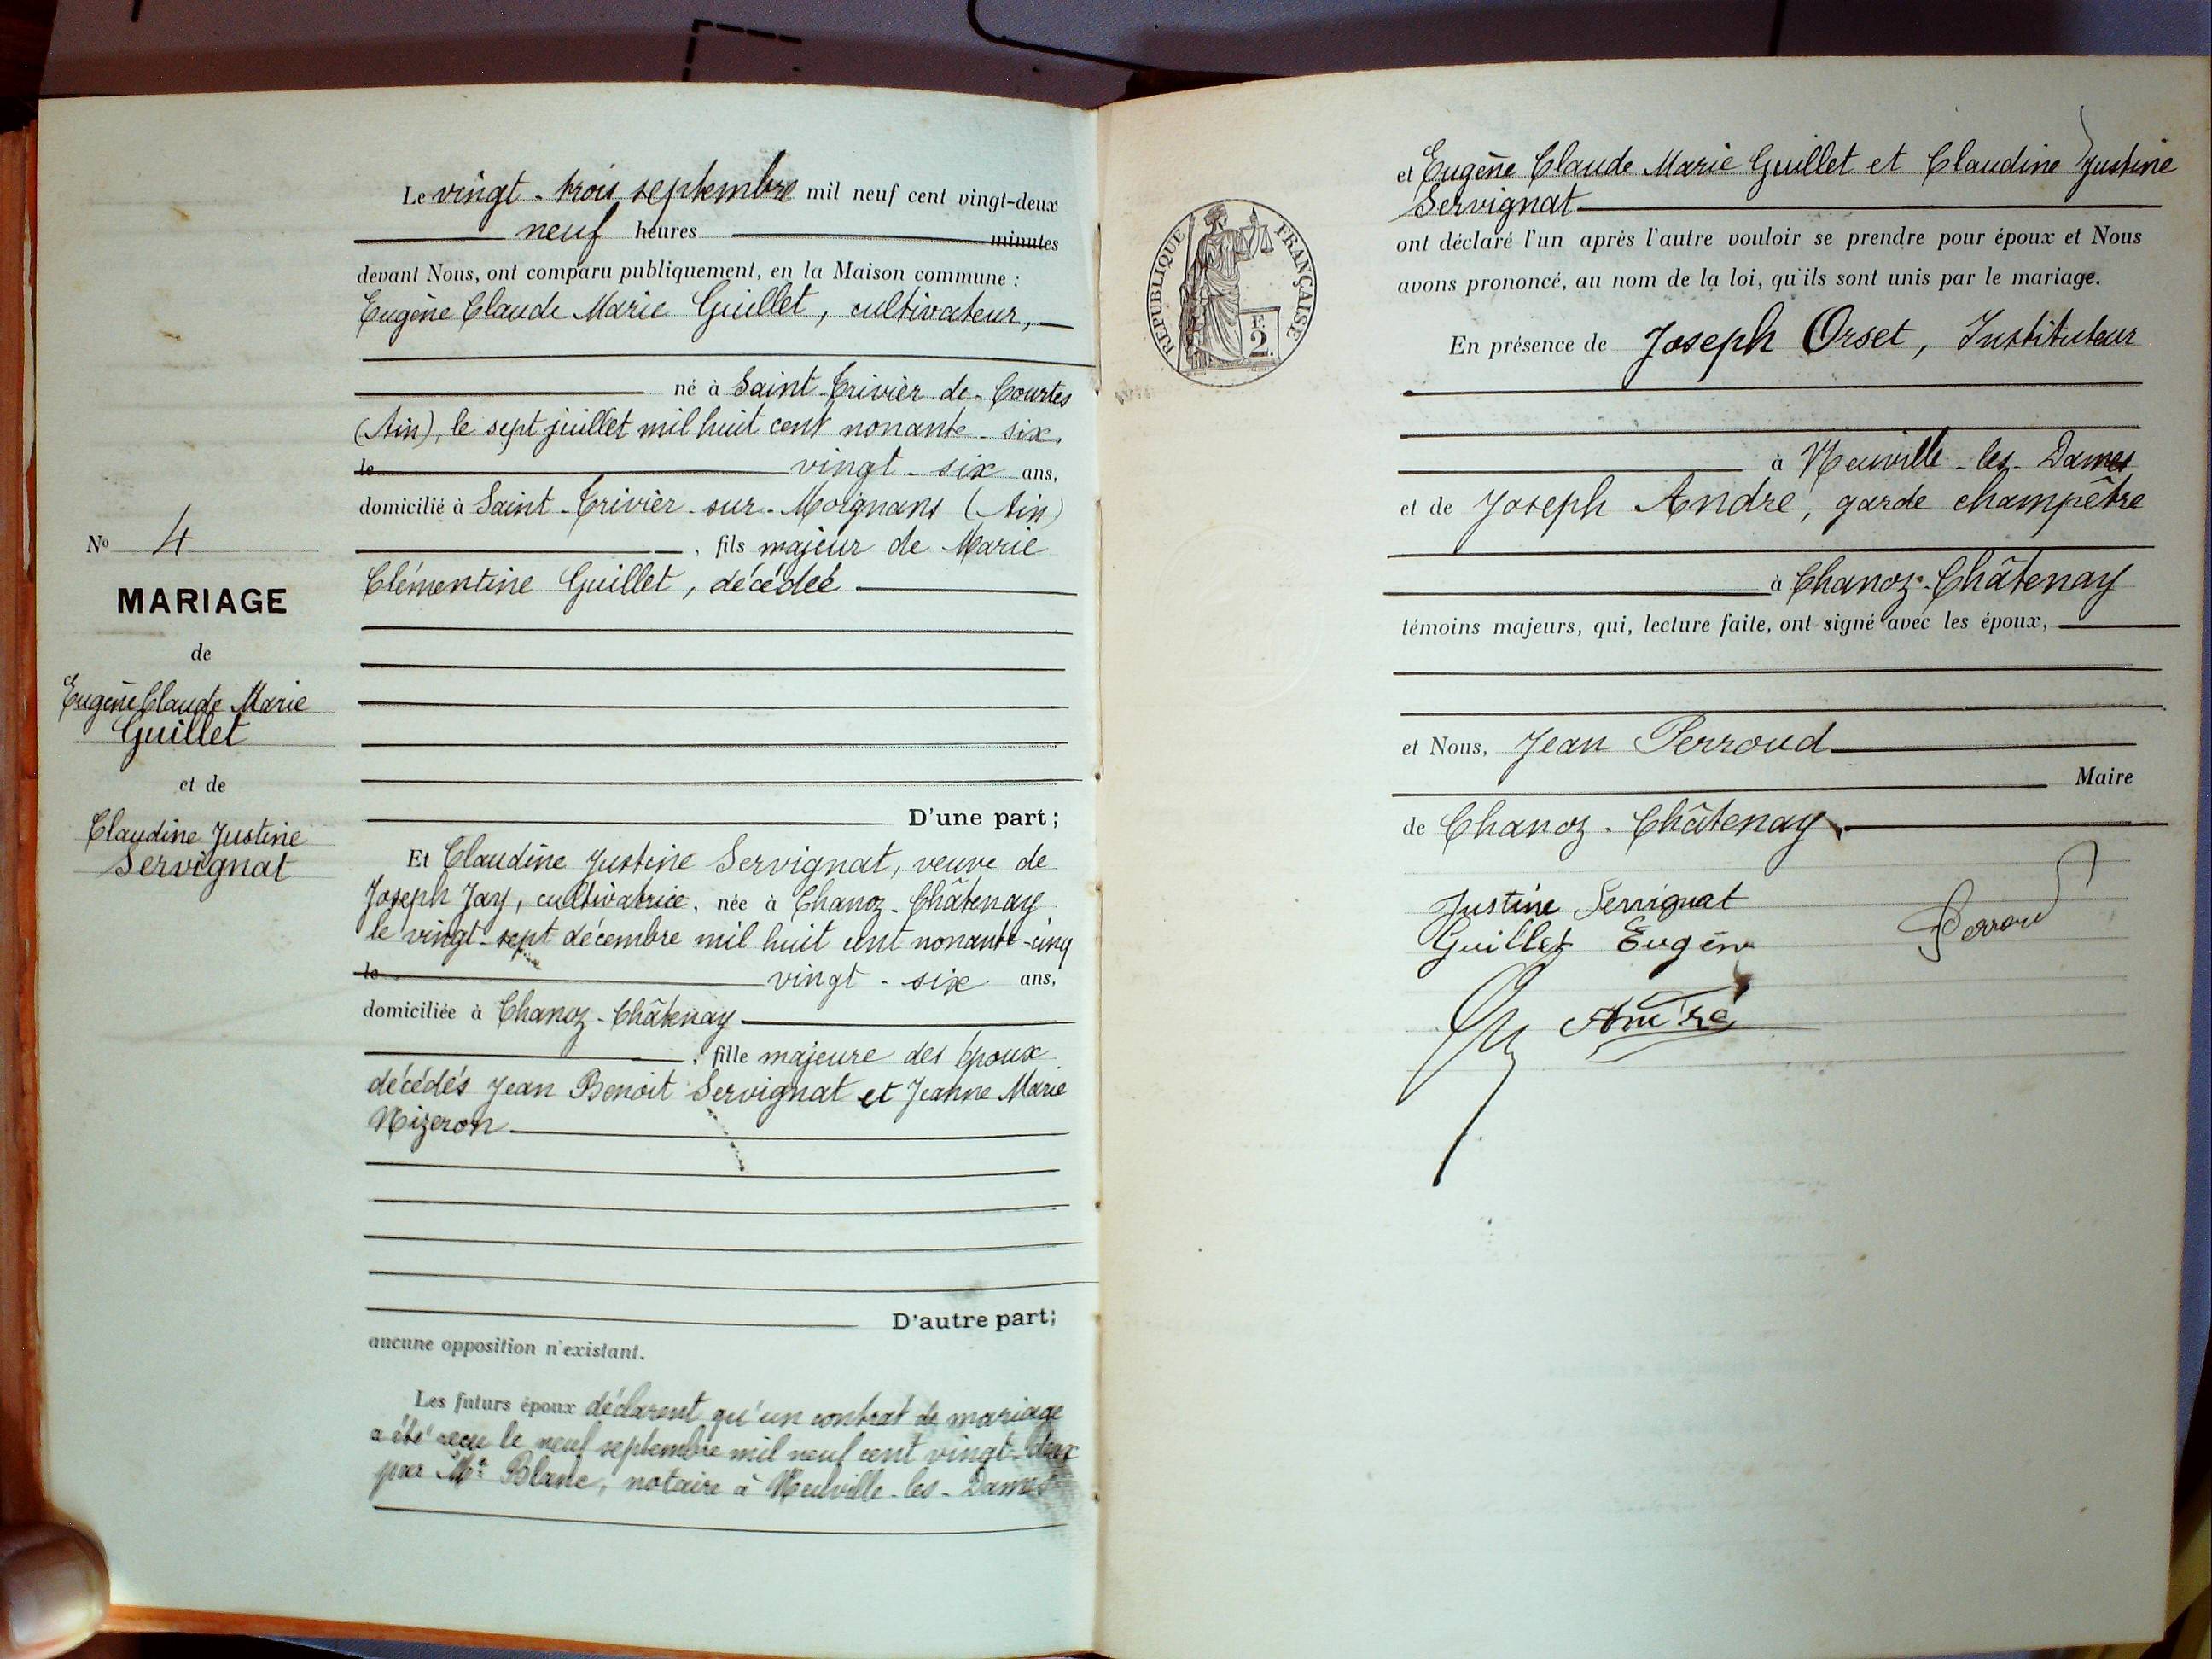 N° 4
MARIAGE
de
Eugène Claude Marie
Guillet
et de
Claudine Justine
Servignat
Le vingt-trois septembre mil neuf cent vingt-deux
neuf heures minutes
devant Nous, ont comparu publiquement, en la Maison commune :
Eugène Claude Marie Guillet, cultivateur,
né à Saint-Trivier-de-Courtes
(Ain), le sept juillet mil huit cent nonante-six,
le vingt-six ans,
domicilié à Saint-Trivier-sur-Moignans (Ain)
, fils majeur de Marie
Clémentine Guillet, décédée
D'une part;
Et Claudine Justine Servignat, veuve de
Joseph Jay, cultivatrice, née à Chanoz-Châtenay
le vingt-sept décembre mil huit cent nonante-cinq
le vingt-six ans,
domiciliée à Chanoz-Châtenay
, fille majeure des époux
décédés Jean Benoit Servignat et Jeanne Marie
Nizeron
D'autre part;
aucune opposition n'existant.
Les futurs époux déclarent qu'un contrat de mariage
a été reçu le neuf septembre mil neuf cent vingt-deux
par Me Blanc, notaire à Neuville-les-Dames
REPUBLIQUE FRANÇAISE
F.
2.
et Eugène Claude Marie Guillet et Claudine Justine
Servignat
ont déclaré l'un après l'autre vouloir se prendre pour époux et Nous
avons prononcé, au nom de la loi, qu'ils sont unis par le mariage.
En présence de Joseph Orset, Instituteur
à Neuville-les-Dames
et de Joseph André, garde champêtre
à Chanoz-Châtenay
témoins majeurs, qui, lecture faite, ont signé avec les époux,
et Nous, Jean Perroud
Maire
de Chanoz-Châtenay
Justine Servignat
Guillet Eugène
Perroud
André